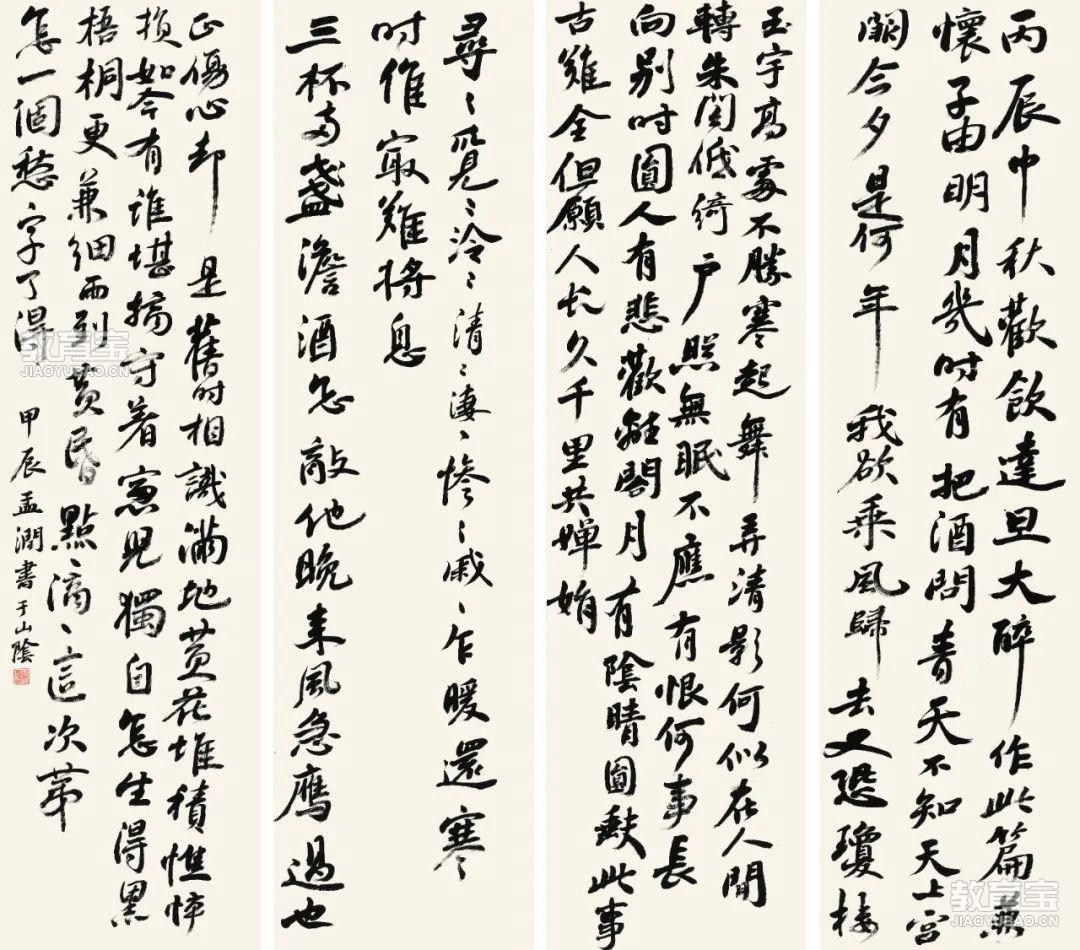 丙辰中秋歡飲達旦大醉作此篇兼
懷子由明月幾时有把酒問青天不知天上宮
闕今夕是何年我欲乘風歸去又恐瓊樓
玉宇高處不勝寒起舞弄清影何似在人間
轉朱閣低綺户照無眠不應有恨何事長
向别时圓人有悲歡離閤月有陰晴圓缺此事
古難全但願人长久千里共嬋娟
尋〻覓〻冷〻清〻凄〻慘〻戚〻乍暖還寒
时候㝡難將息
三杯兩盞澹酒怎敵他晚来風急鴈過也
正傷心却是舊时相識滿地黄花堆積憔悴
損如今有誰堪摘守着窓兒獨自怎生得黑
梧桐更兼细雨到黄昏點〻滴〻這次第
怎一個愁字了得
甲辰孟潤書于山陰
教育宝
JIAOYUBAO.CN
教育宝
JIAOYUBAO.CN